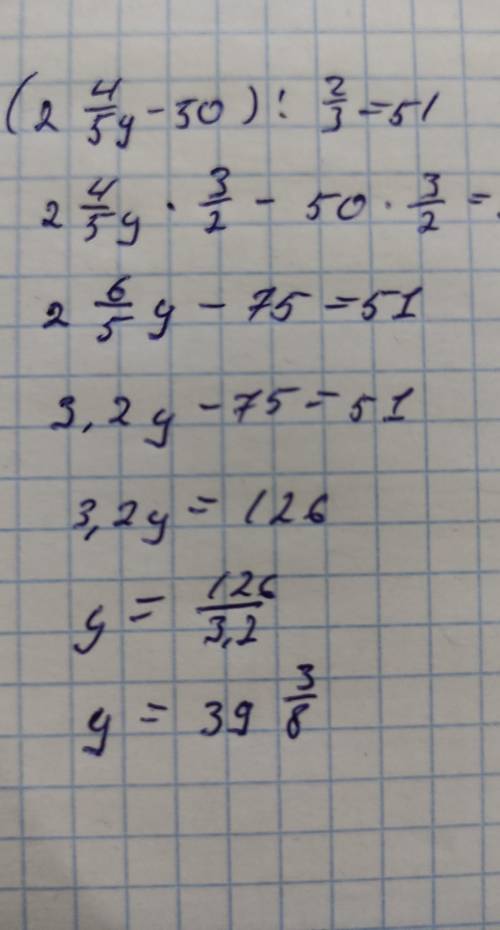 (2 4/5 y - 50) : 2/3 = 51
2 4/5 y · 3/2 - 50 · 3/2 =
2 6/5 y - 75 = 51
3,2y - 75 = 51
3,2y = 126
y = 126/3,2
y = 39 3/8